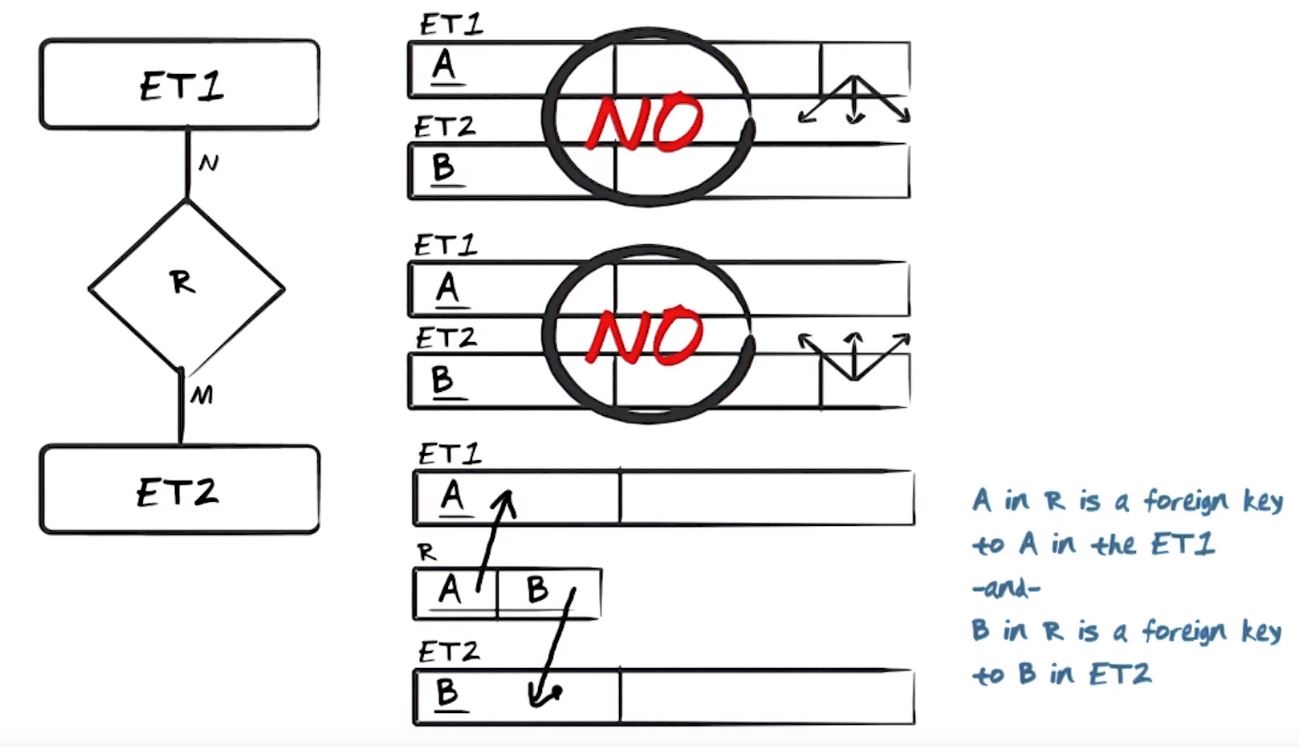 ET1
N
R
M
ET2
ET1
A
NO
ET2
B
ET1
A
NO
ET2
B
ET1
A
R
A B
ET2
B
A in R is a foreign key
to A in the ET1
-and-
B in R is a foreign key
to B in ET2